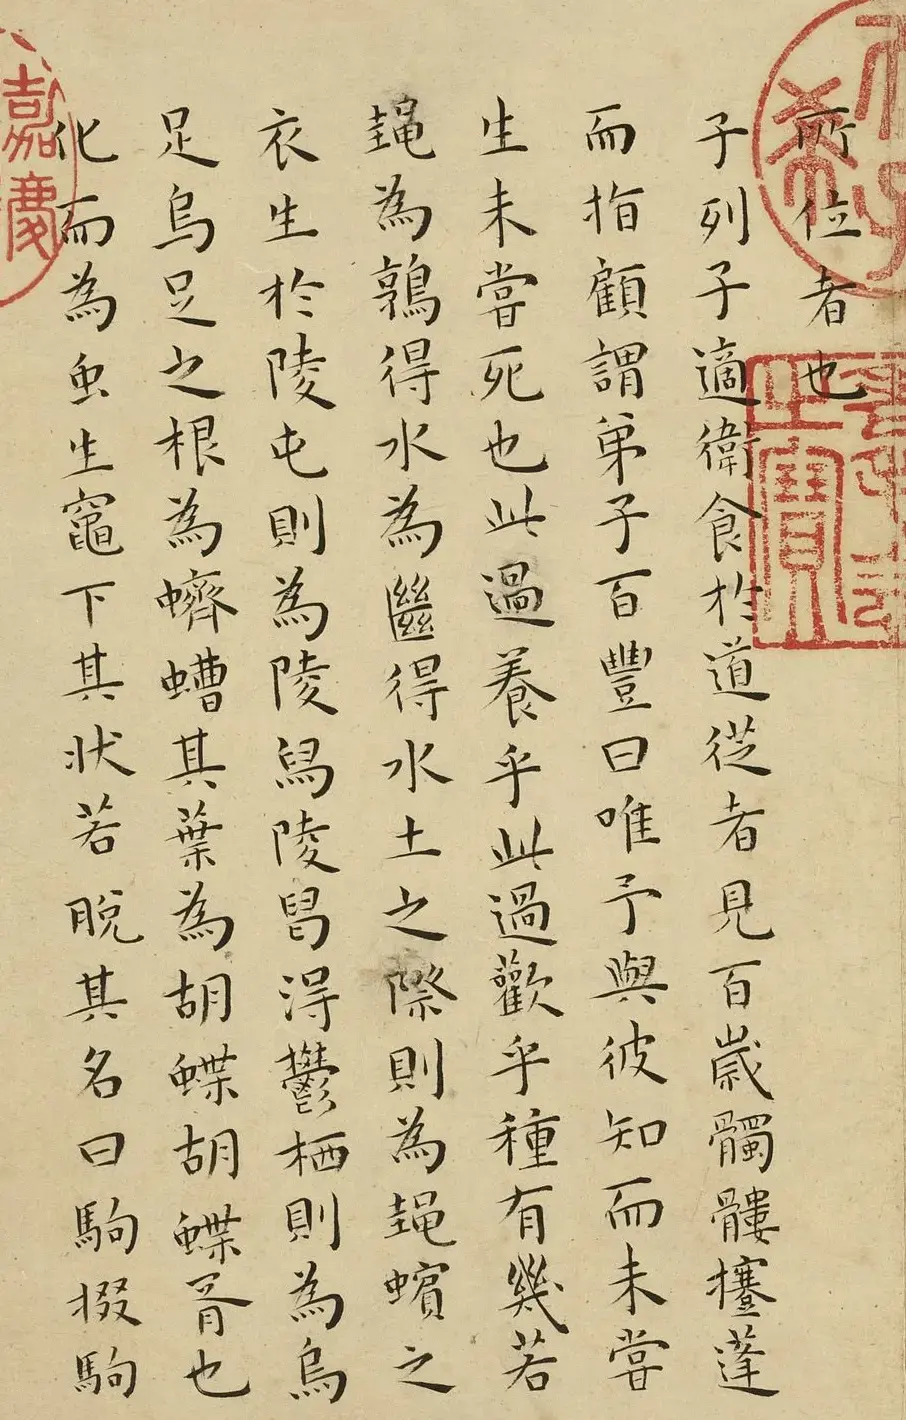 所位者也
子列子適衛食於道從者見百歲髑髏攓蓬
而指顧謂弟子百豐曰唯予與彼知而未嘗
生未嘗死也此過養乎此過歡乎種有幾若
䵷為鶉得水為㡭得水土之際則為䵷蠙之
衣生於陵屯則為陵舄陵舄得鬱栖則為烏
足烏足之根為蠐螬其葉為胡蝶胡蝶胥也
化而為虫生竈下其狀若脫其名曰駒掇駒
嘉慶